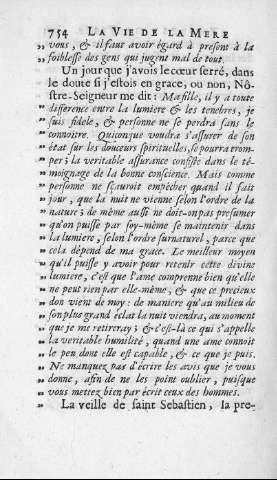 754 LA VIE DE LA MERE
„ vous, & il faut avoir égard à present à la
„ foiblesse des gens qui jugent mal de tout.
Un jour que j'avois le cœur serré, dans
le doute si j'estois en grace, ou non, Nô-
stre-Seigneur me dit: Ma fille, il y a toute
„ difference entre la lumiere & les tenebres, je
„ suis fidele, & personne ne se perdra sans le
„ connoître. Quiconque voudra s'assurer de son
„ état sur les douceurs spirituelles, se pourra trom-
„ per; la veritable assurance consiste dans le té-
„ moignage de la bonne conscience. Mais comme
„ personne ne sçauroit empêcher quand il fait
„ jour, que la nuit ne vienne selon l'ordre de la
„ nature; de même aussi ne doit-on pas presumer
„ qu'on puisse par soy-même se maintenir dans
„ la lumiere, selon l'ordre surnaturel, parce que
„ cela dépend de ma grace. Le meilleur moyen
„ qu'il puisse y avoir pour retenir cette divine
„ lumiere, c'est que l'ame comprenne bien qu'elle
„ ne peut rien par elle-même, & que ce precieux
„ don vient de moy: de maniere qu'au milieu de
„ son plus grand éclat la nuit viendra, au moment
„ que je me retireray; & c'est-là ce qui s'appelle
„ la veritable humilité, quand une ame connoît
„ le peu dont elle est capable, & ce que je puis.
„ Ne manquez pas d'écrire les avis que je vous
„ donne, afin de ne les point oublier, puisque
„ vous mettez bien par écrit ceux des hommes.
„ La veille de saint Sebastien, la pre-